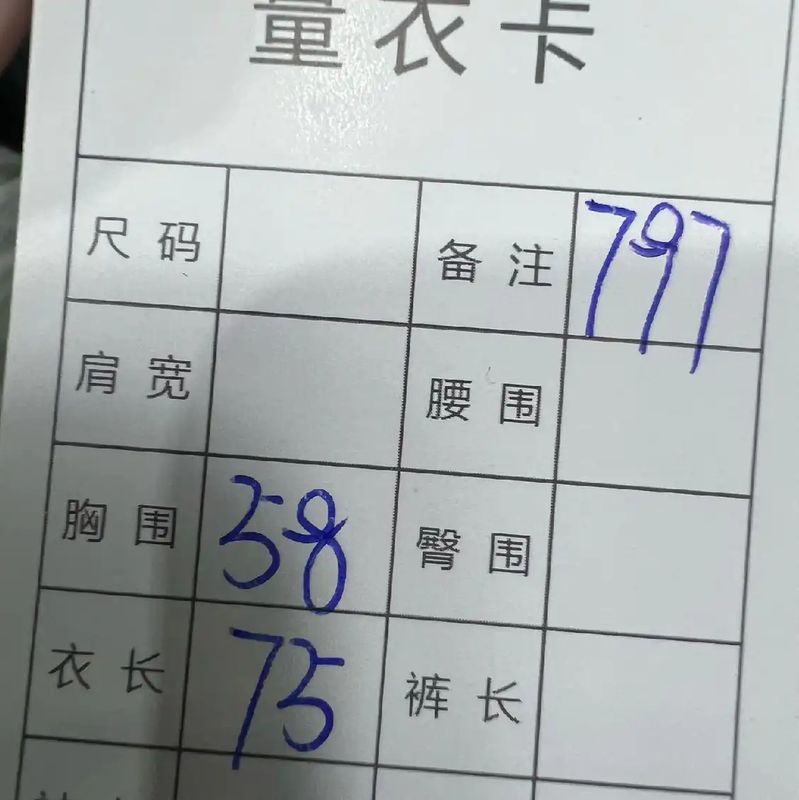 量衣卡
尺码 备注 797
肩宽 腰围
胸围 58 臀围
衣长 75 裤长